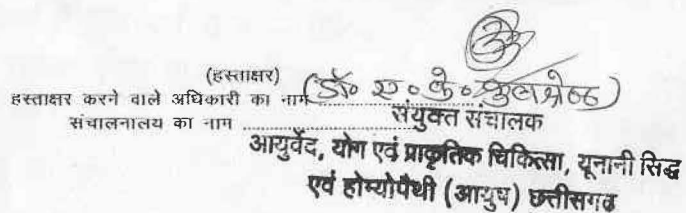 (हस्ताक्षर)
हस्ताक्षर करने वाले अधिकारी का नाम (डॉ० ए० के० कुलश्रेष्ठ)
संचालनालय का नाम ........................ संयुक्त संचालक
आयुर्वेद, योग एवं प्राकृतिक चिकित्सा, यूनानी सिद्ध
एवं होम्योपैथी (आयुष) छत्तीसगढ